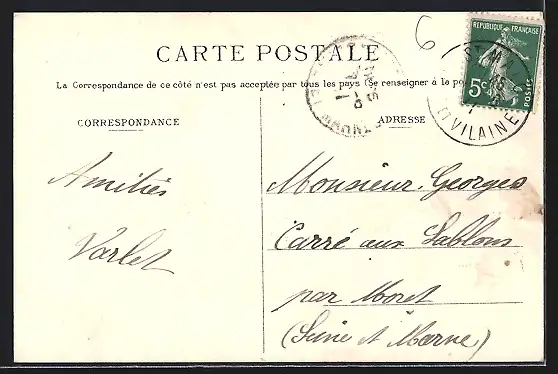 6
RÉPUBLIQUE FRANÇAISE
5c
POSTES
ST MA
VILAINE
CARTE POSTALE
La Correspondance de ce côté n'est pas acceptée par tous les pays (Se renseigner à la po
CORRESPONDANCE
ADRESSE
Amitiés
Varlet
Monsieur Georges
Carré aux Sablons
par Moret
(Seine et Marne)